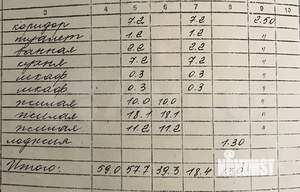 2 3 4 5 6 7 8 9 10
коридор 7.2 7.2 2.50
туалет 1.2 1.2 "
ванная 2.2 2.2 "
кухня 7.2 7.2 "
шкаф 0.3 0.3 "
шкаф 0.3 0.3 "
жилая 10.0 10.0 "
жилая 18.1 18.1 "
жилая 11.2 11.2 "
лоджия 1.30
Итого: 59.0 57.7 39.3 18.4